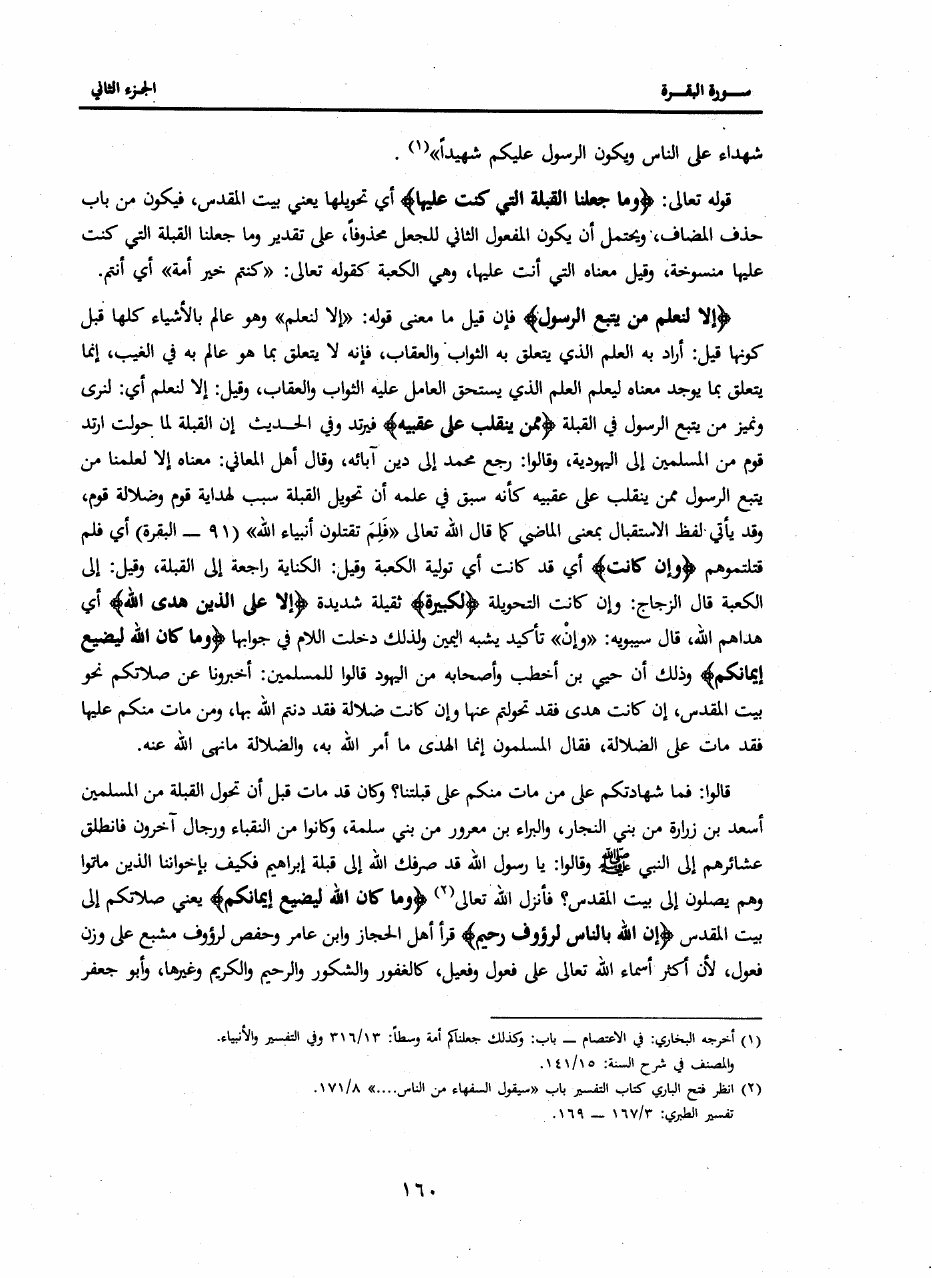 سورة البقرة
الجزء الثاني
شهداء على الناس ويكون الرسول عليكم شهيداً»(١) .
قوله تعالى: ﴿وما جعلنا القبلة التي كنت عليها﴾ أي تحويلها يعني بيت المقدس، فيكون من باب
حذف المضاف، ويحتمل أن يكون المفعول الثاني للجعل محذوفاً، على تقدير وما جعلنا القبلة التي كنت
عليها منسوخة، وقيل معناه التي أنت عليها، وهي الكعبة كقوله تعالى: «كنتم خير أمة» أي أنتم.
﴿إلا لنعلم من يتبع الرسول﴾ فإن قيل ما معنى قوله: «إلا لنعلم» وهو عالم بالأشياء كلها قبل
كونها قيل: أراد به العلم الذي يتعلق به الثواب والعقاب، فإنه لا يتعلق بما هو عالم به في الغيب، إنما
يتعلق بما يوجد معناه ليعلم العلم الذي يستحق العامل عليه الثواب والعقاب، وقيل: إلا لنعلم أي: لنرى
ونميز من يتبع الرسول في القبلة ﴿ممن ينقلب على عقبيه﴾ فيرتد وفي الحـديث إن القبلة لما حولت ارتد
قوم من المسلمين إلى اليهودية، وقالوا: رجع محمد إلى دين آبائه، وقال أهل المعاني: معناه إلا لعلمنا من
يتبع الرسول ممن ينقلب على عقبيه كأنه سبق في علمه أن تحويل القبلة سبب لهداية قوم وضلالة قوم،
وقد يأتي لفظ الاستقبال بمعنى الماضي كما قال الله تعالى «فَلِمَ تقتلون أنبياء الله» (٩١ ــ البقرة) أي فلم
قتلتموهم ﴿وإن كانت﴾ أي قد كانت أي تولية الكعبة وقيل: الكناية راجعة إلى القبلة، وقيل: إلى
الكعبة قال الزجاج: وإن كانت التحويلة ﴿لكبيرة﴾ ثقيلة شديدة ﴿إلا على الذين هدى الله﴾ أي
هداهم الله، قال سيبويه: «وإنْ» تأكيد يشبه اليمين ولذلك دخلت اللام في جوابها ﴿وما كان الله ليضيع
إيمانكم﴾ وذلك أن حيي بن أخطب وأصحابه من اليهود قالوا للمسلمين: أخبرونا عن صلاتكم نحو
بيت المقدس، إن كانت هدى فقد تحولتم عنها وإن كانت ضلالة فقد دنتم الله بها، ومن مات منكم عليها
فقد مات على الضلالة، فقال المسلمون إنما الهدى ما أمر الله به، والضلالة مانهى الله عنه.
قالوا: فما شهادتكم على من مات منكم على قبلتنا؟ وكان قد مات قبل أن تحول القبلة من المسلمين
أسعد بن زرارة من بني النجار، والبراء بن معرور من بني سلمة، وكانوا من النقباء ورجال آخرون فانطلق
عشائرهم إلى النبي ﷺ وقالوا: يا رسول الله قد صرفك الله إلى قبلة إبراهيم فكيف بإخواننا الذين ماتوا
وهم يصلون إلى بيت المقدس؟ فأنزل الله تعالى(٢) ﴿وما كان الله ليضيع إيمانكم﴾ يعني صلاتكم إلى
بيت المقدس ﴿إن الله بالناس لرؤوف رحيم﴾ قرأ أهل الحجاز وابن عامر وحفص لرؤوف مشبع على وزن
فعول، لأن أكثر أسماء الله تعالى على فعول وفعيل، كالغفور والشكور والرحيم والكريم وغيرها، وأبو جعفر
(١) أخرجه البخاري: في الاعتصام ــ باب: وكذلك جعلناكم أمة وسطاً: ٣١٦/١٣ وفي التفسير والأنبياء.
والمصنف في شرح السنة: ١٤١/١٥.
(٢) انظر فتح الباري كتاب التفسير باب «سيقول السفهاء من الناس....» ١٧١/٨.
تفسير الطبري: ١٦٧/٣ ــ ١٦٩.
١٦٠